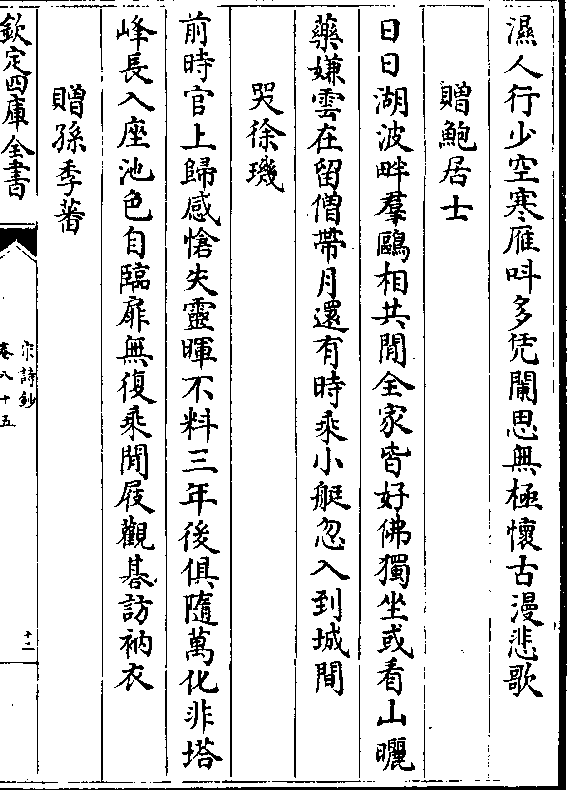 濕人行少空寒雁呌多凭闌思無極懷古漫悲歌
贈鮑居士
日日湖波畔羣鷗相共閒全家皆好佛獨坐或看山曬
藥嫌雲在留僧帶月還有時乘小艇忽入到城間
哭徐璣
前時官上歸感愴失靈暉不料三年後俱隨萬化非塔
峰長入座池色自臨扉無復乘閒屐觀碁訪衲衣
贈孫季蕃
欽定四庫全書
宋詩鈔
卷八十五
十二